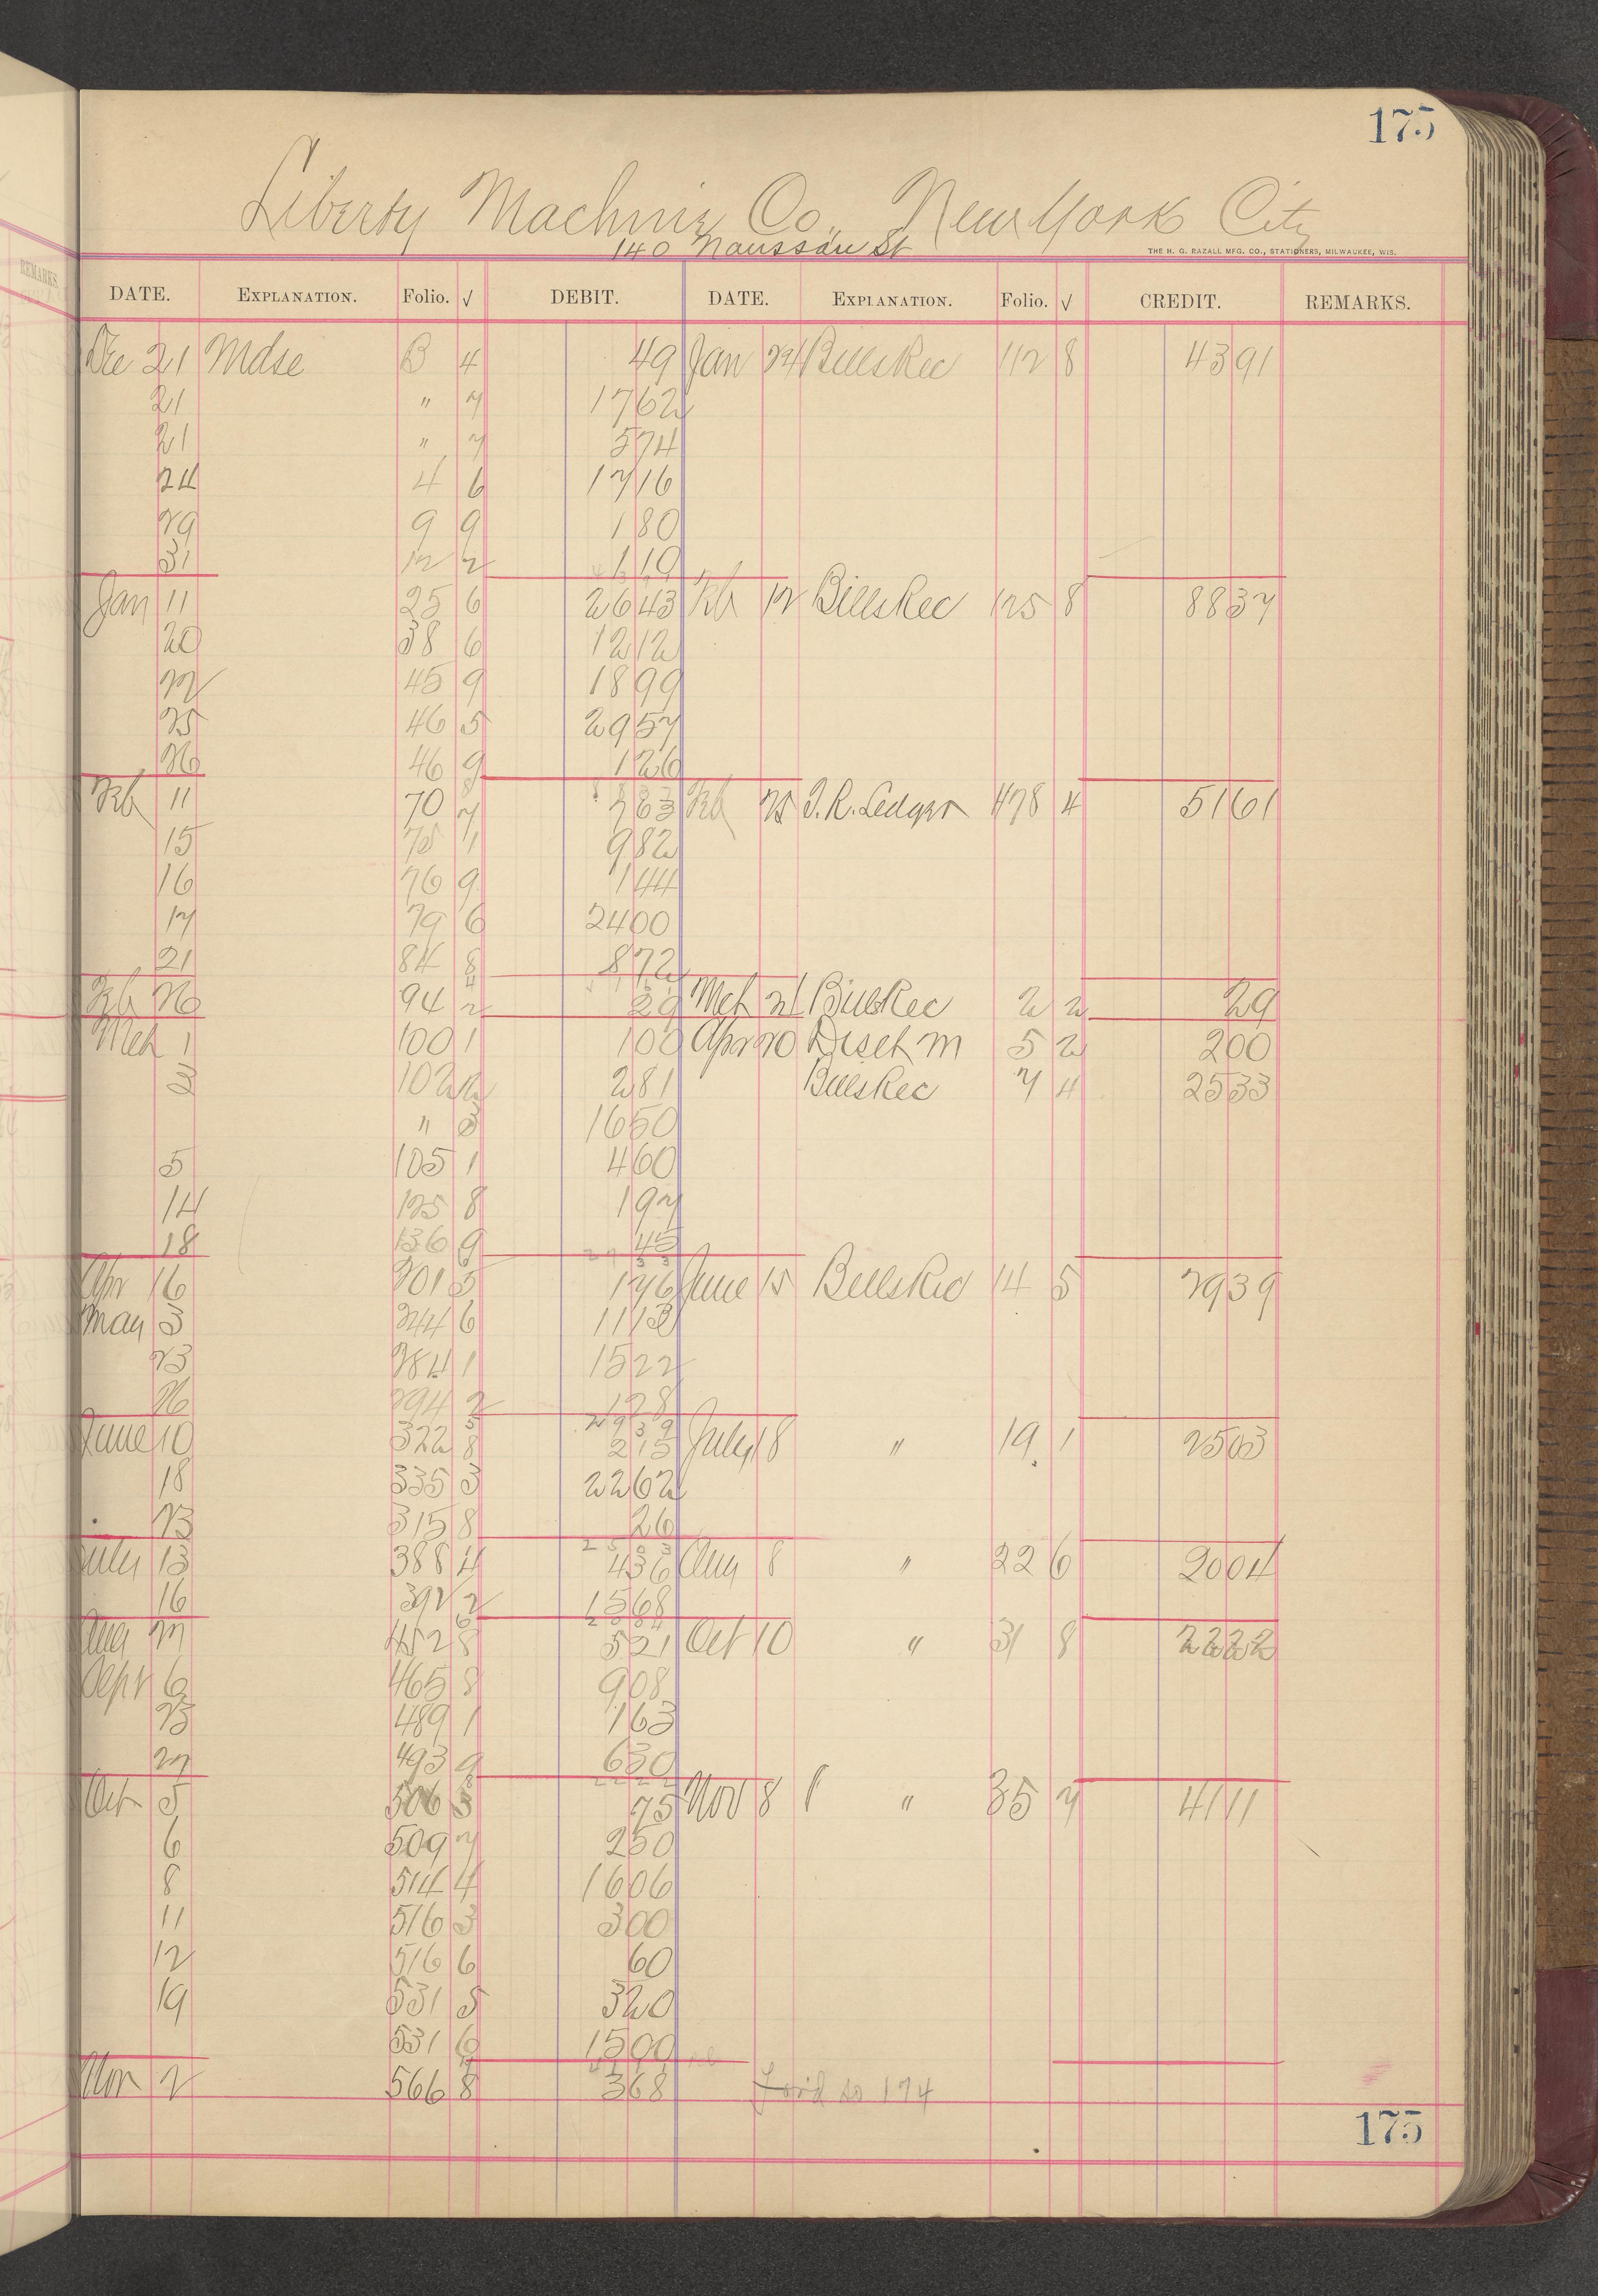 175
Liberty Machine Co., New York City
140 Naussau St
THE H. G. RAZALL MFG. CO., STATIONERS, MILWAUKEE, WIS.
DATE. EXPLANATION. Folio. √ DEBIT. DATE. EXPLANATION. Folio. √ CREDIT. REMARKS.
Dec 21 Mdse B 4 49 Jan 24 Bills Rec 112 8 43 91
21 " 7 17 62
21 " 7 5 74
24 4 6 17 16
29 9 9 1 80
31 12 2 1 10
Jan 11 25 6 26 43 Feb 12 Bills Rec 125 8 88 37
20 38 6 12 12
22 45 9 18 99
25 46 5 29 57
26 46 9 1 26
Feb 11 70 7 7 63 Feb 25 J. R. Ledger 478 4 51 61
15 75 1 9 82
16 76 9 1 44
17 79 6 24 00
21 84 8 8 72
Feb 26 94 2 29 Mch 21 Bills Rec 2 2 29
Mch 1 100 1 1 00 Apr 20 Disct M 5 2 2 00
2 102 2 2 81 Bills Rec 7 4 25 33
" 3 16 50
5 105 1 4 60
14 125 8 1 97
18 136 9 45
Apr 16 201 5 1 76 June 15 Bills Rec 14 5 29 39
May 3 244 6 11 13
23 284 1 15 22
26 294 2 1 28
29 39
June 10 322 8 2 15 July 18 " 19 1 25 03
18 335 3 22 62
23 315 8 26
25 03
July 13 388 4 4 36 Aug 8 " 22 6 20 04
16 392 2 15 68
20 04
Aug 27 452 8 5 21 Oct 10 " 31 8 22 22
Sept 6 465 8 9 08
23 489 1 1 63
27 493 9 6 30
22 22
Oct 5 506 3 75 Nov 8 " 35 7 41 11
6 509 7 2 50
8 514 4 16 06
11 516 3 3 00
12 516 6 60
19 531 5 3 20
531 6 15 00
Nov 2 566 8 3 68 For'd to 174
175